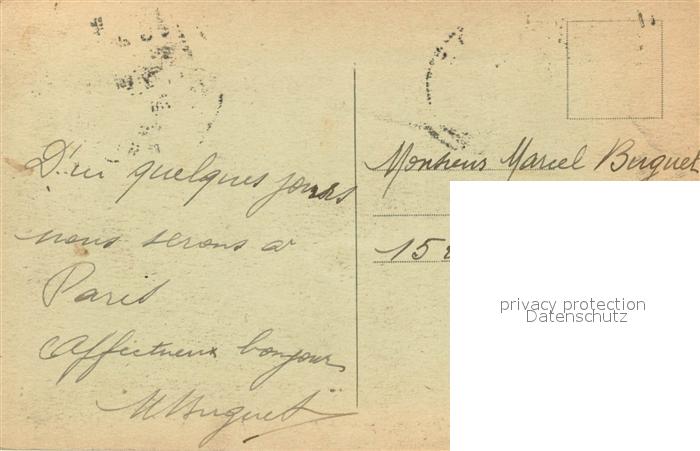 D'ici quelques jours
nous serons à
Paris
Affectueux bonjours
M Burguet
Monsieur Marcel Burguet
15
privacy protection
Datenschutz